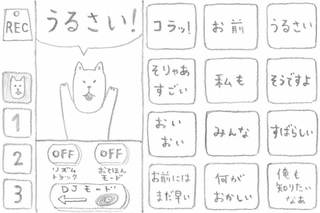 REC
1
2
3
うるさい!
OFF
リズム
トラック
OFF
おてほん
モード
DJモード
コラッ!
お前
うるさい
そりゃあ
すごい
私も
そうですよ
おい
おい
みんな
すばらしい
お前には
まだ早い
何が
おかしい
俺も
知りたい
なあ